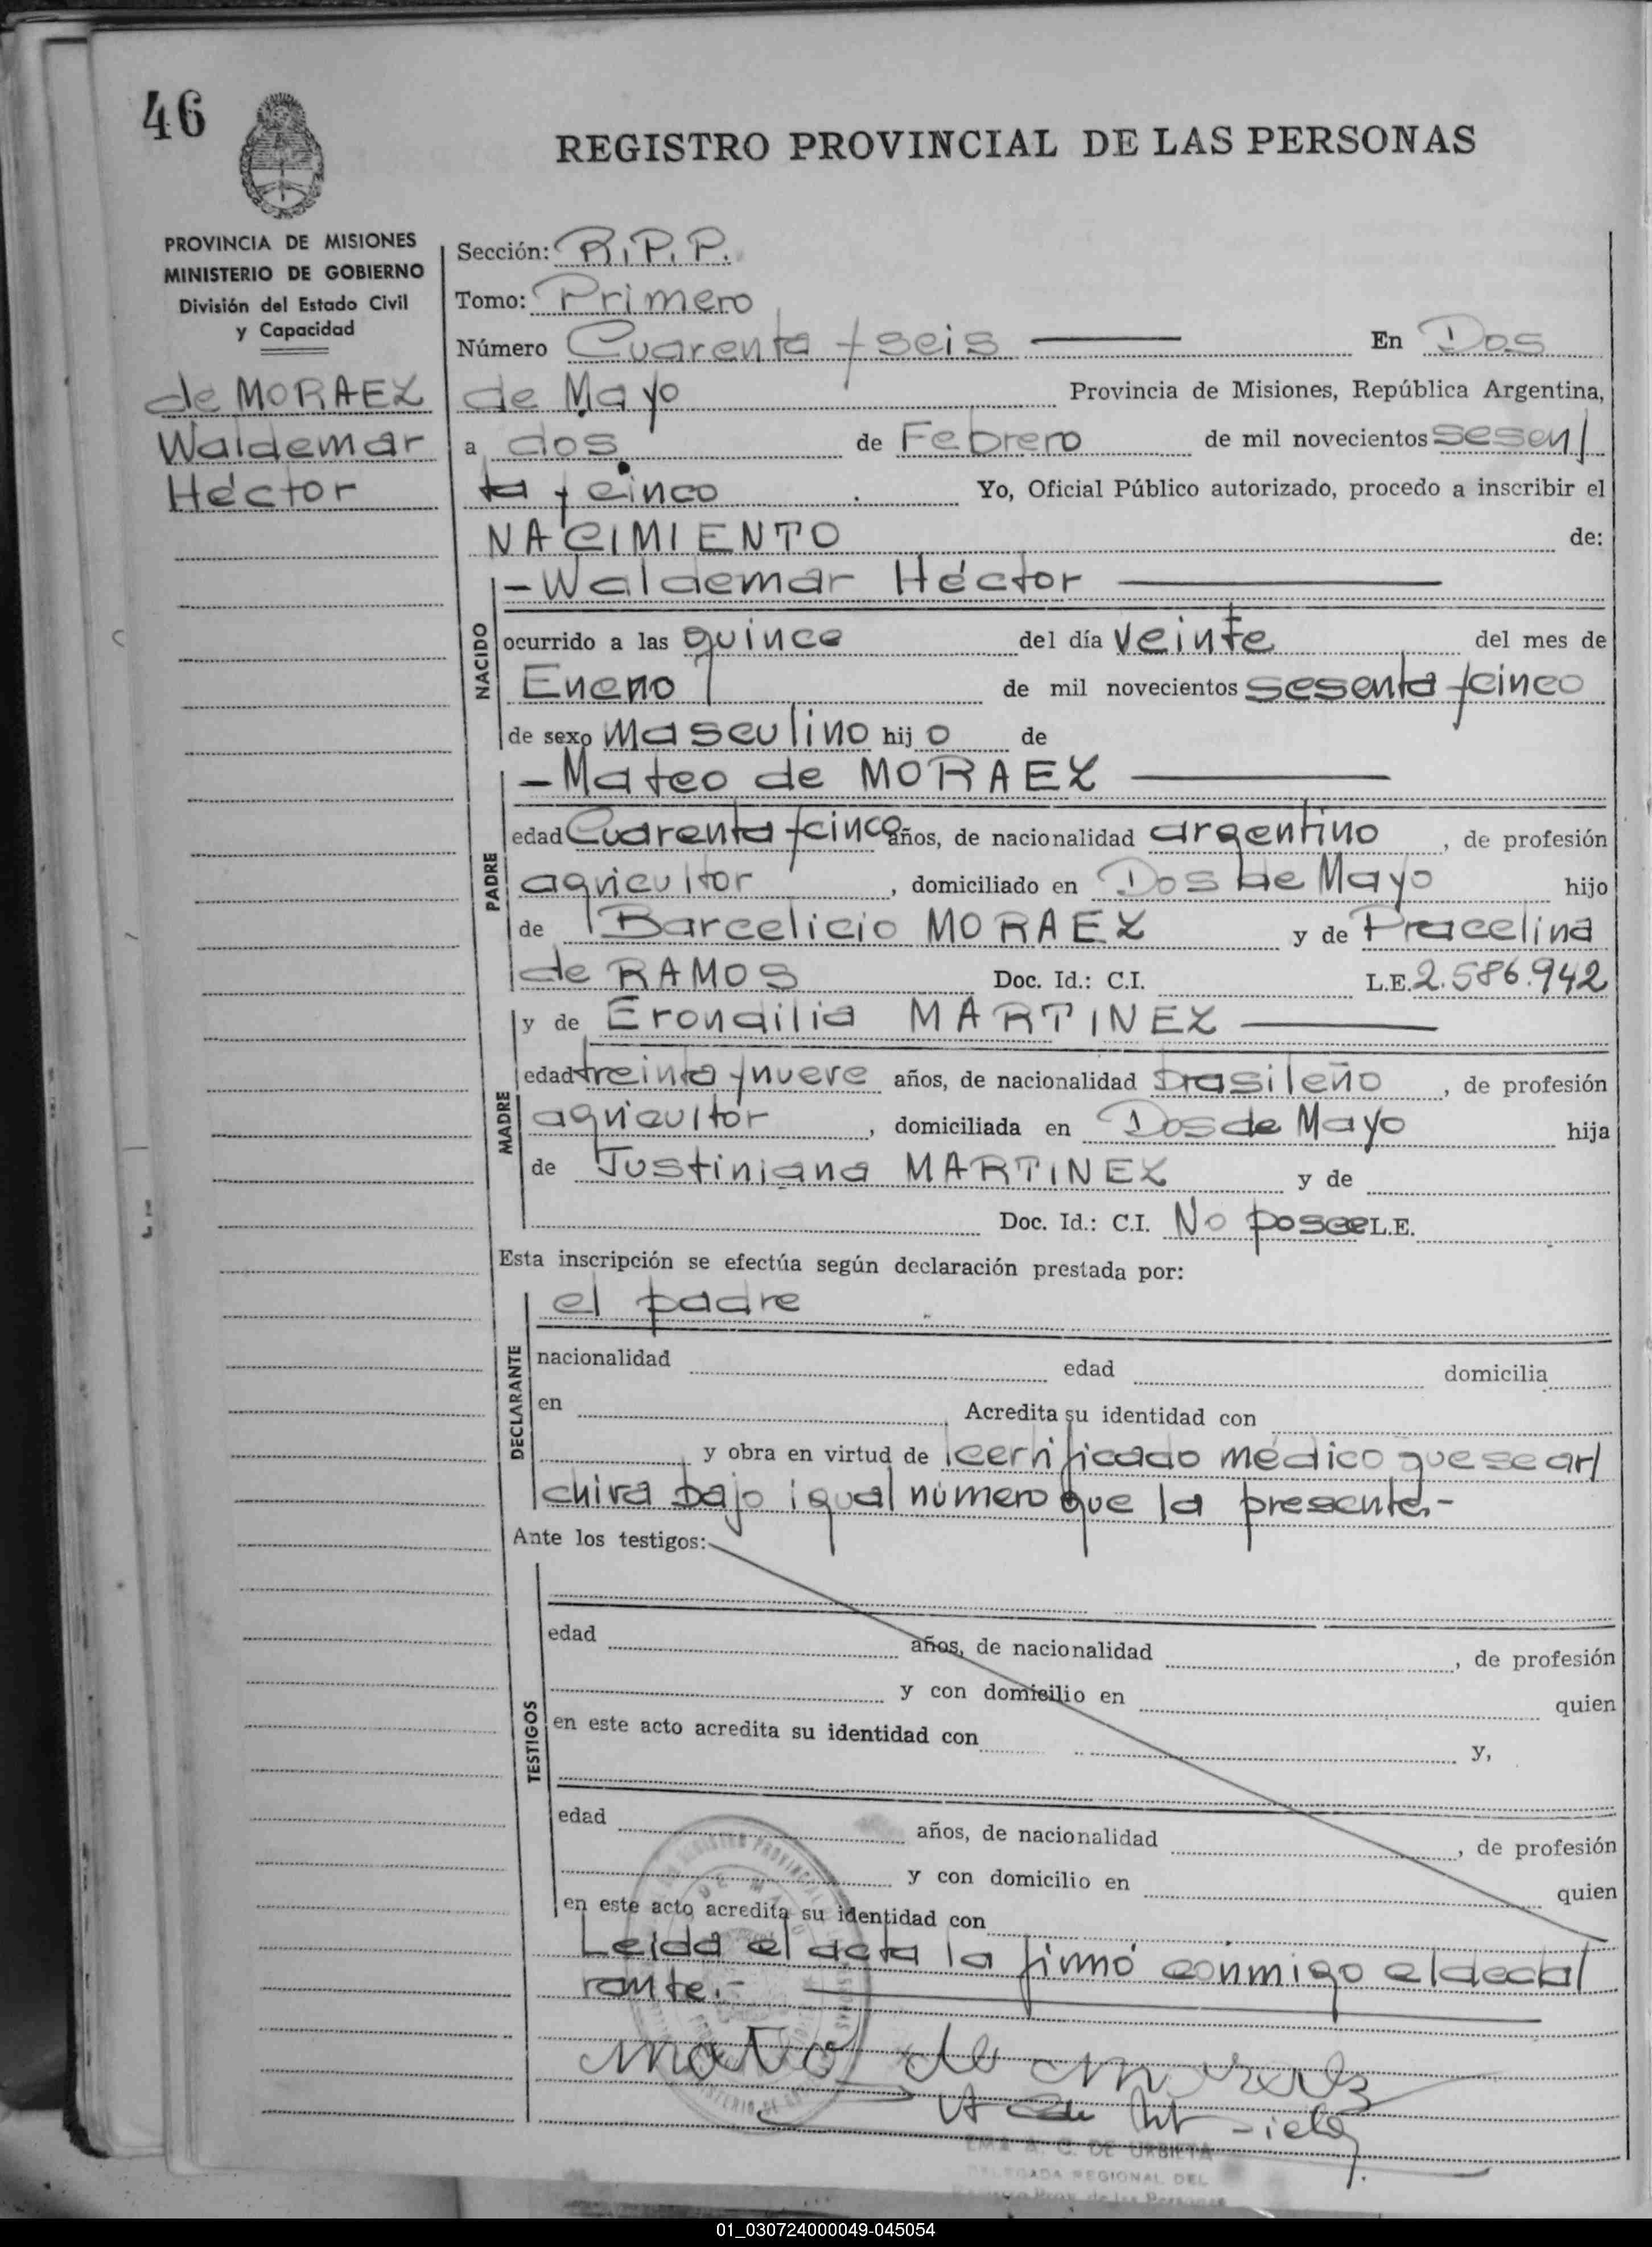 46
REGISTRO PROVINCIAL DE LAS PERSONAS
PROVINCIA DE MISIONES
MINISTERIO DE GOBIERNO
División del Estado Civil
y Capacidad
de MORAEZ
Waldemar
Héctor
Sección: R.P.P.
Tomo: Primero
Número Cuarenta y seis En Dos
de Mayo Provincia de Misiones, República Argentina,
a dos de Febrero de mil novecientos sesen/
ta y cinco Yo, Oficial Público autorizado, procedo a inscribir el
NACIMIENTO de:
NACIDO
- Waldemar Héctor
ocurrido a las quince del día veinte del mes de
Enero de mil novecientos sesenta y cinco
de sexo masculino hijo de
PADRE
- Mateo de MORAEZ
edad Cuarenta y cinco años, de nacionalidad argentino, de profesión
agricultor, domiciliado en Dos de Mayo hijo
de Barcelicio MORAEZ y de Pracelina
de RAMOS Doc. Id.: C.I. L.E. 2.586.942
MADRE
y de Erondilia MARTINEZ
edad treinta y nueve años, de nacionalidad brasileño, de profesión
agricultor, domiciliada en Dos de Mayo hija
de Justiniana MARTINEZ y de
Doc. Id.: C.I. No posee L.E.
Esta inscripción se efectúa según declaración prestada por:
DECLARANTE
el padre
nacionalidad edad domicilia
en Acredita su identidad con
y obra en virtud de certificado médico que se ar/
chiva bajo igual número que la presente.-
Ante los testigos:
TESTIGOS
edad años, de nacionalidad, de profesión
y con domicilio en quien
en este acto acredita su identidad con y,
edad años, de nacionalidad, de profesión
y con domicilio en quien
en este acto acredita su identidad con
Leida el acta la firmó conmigo el decla/
rante.-
mateo de moraez
C. DE URBIETA
DELEGADA REGIONAL DEL
Prov. de las Personas
01_030724000049-045054